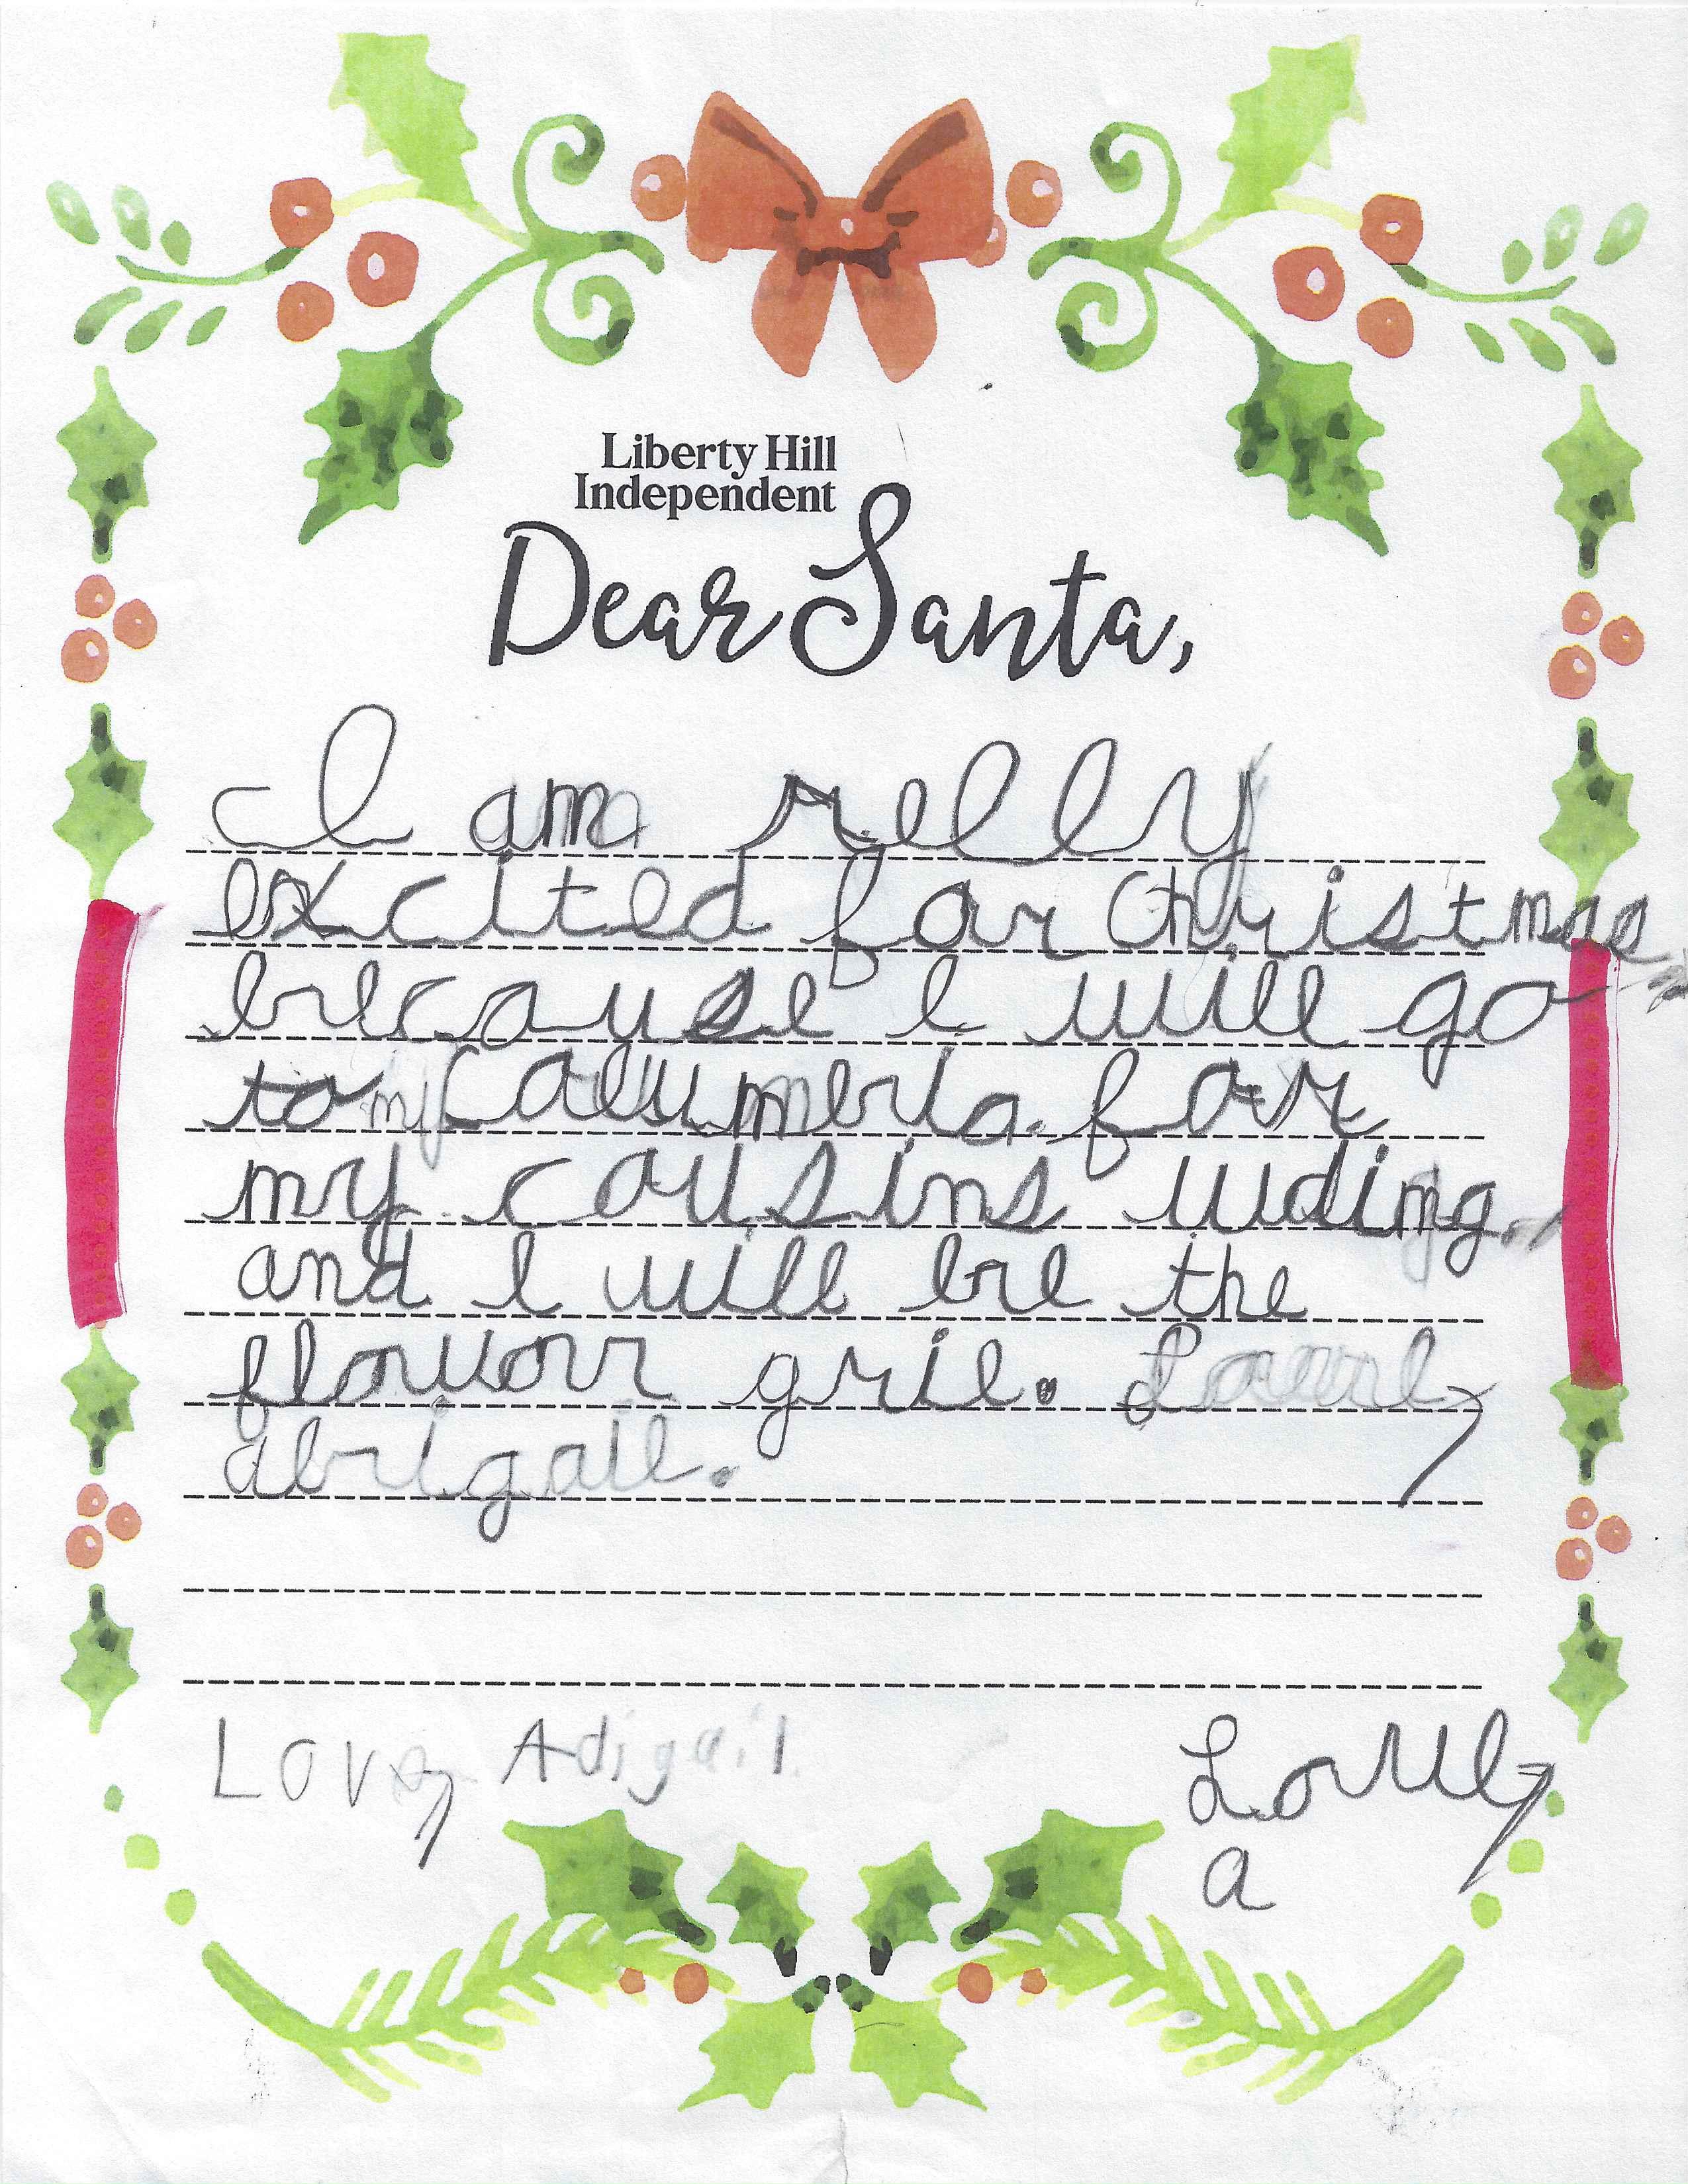 Liberty Hill
Independent
Dear Santa,
I am relly
excited for Christmas
because I will go
to Columbia for
my cousins wding.
and I will be the
flowor gril. Love,
abigail.
Love, Adigail
Love,
a